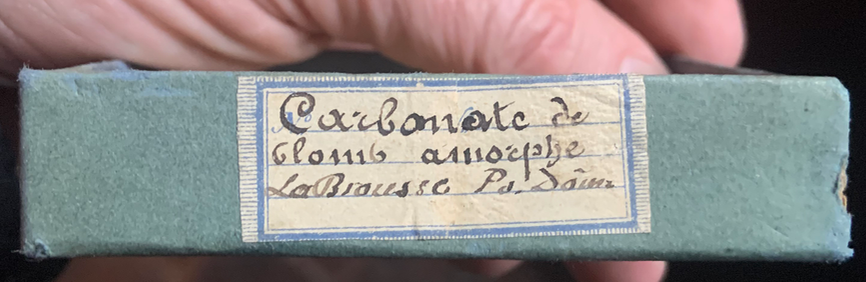 Carbonate de
Plomb amorphe
LaBrousse Pd. Dôme